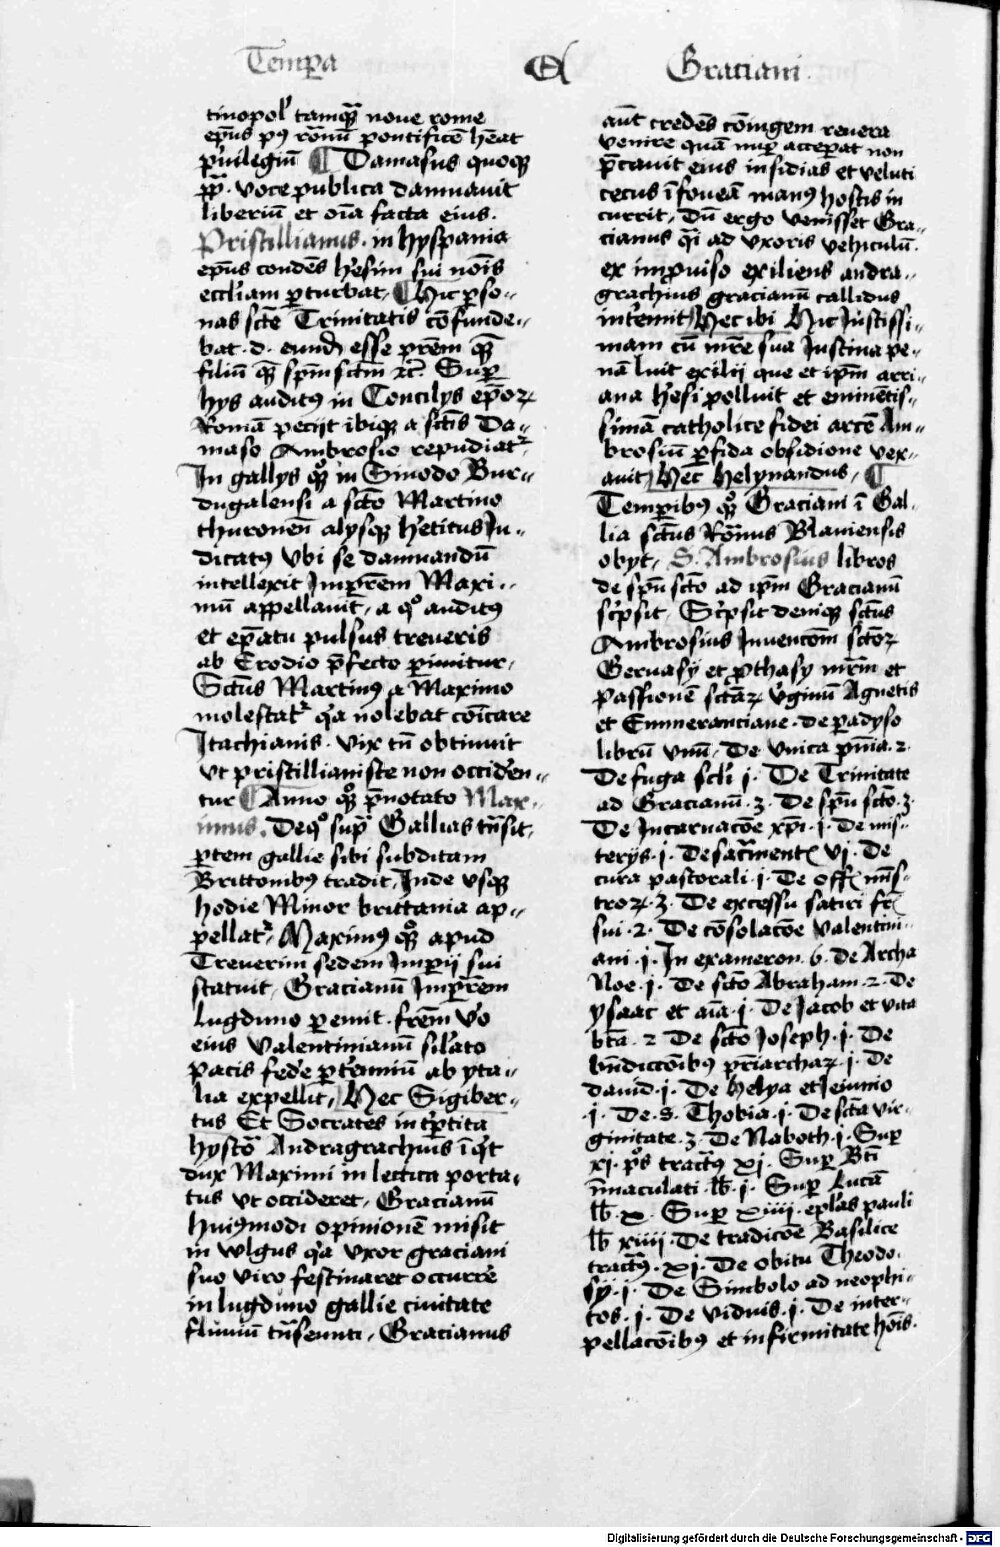 Tempa
Graciani.
tinopolˀ tamqᷓ noue rome
epūs pꝰ romū pontificē hēat
pͥuilegiū ¶ Damasus quoqꝫ
pp̄. voce publica damnauit
liberiū et oīa facta eius.
Priscillianus. in hyspania
epūs condēs hˀesim sui noīs
eccl̄iam ꝑturbat, ¶ Hic ꝑso-
nas scte Trinitatis cōfunde-
bat .d. eundē esse prēm qᷓ
filiū qᷓ spm̄ sctm̄ ⁊cͣ Suꝑ
hys auditꝰ in Concilys ep̄oꝝ
Romā peciit ibiqꝫ a sctīs Da-
maso Ambrosio repudiatˀ
In gallys qͦꝫ in Sinodo Bur-
dugalensi a sctō Martino
thuronen̄ alysqꝫ hˀeticus Ju-
dicatꝰ Vbi se damnandū
intellexit Impˀrēm Maxi-
mū appellauit, a qͦ auditꝰ
et ep̄atu pulsus treueris
ab Erodio p̄fecto ꝑimitur,
Sctūs Martinꝰ a Maximo
molestatˀ qͥa nolebat cōīcare
Itachianis. vix tn̄ obtinuit
vt priscillianiste non occiden-
tur ¶ Anno qͦꝫ p̄notato Max-
imus. Deqͦ supͣ Gallias tn̄sit,
ꝑtem gallie sibi subditam
Brittonibꝰ tradit, Inde vsqꝫ
hodie Minor brittania ap-
pellatˀ, Maximꝰ qͦꝫ apud
Treuerim sedem Impˀij sui
statuit, Gracianū Impˀrēm
lugduno ꝑemit. frēm vˀo
eius Valentinianū silˀato
pacis federe ꝑterritū ab yta-
lia expellit, Hec Sigiber-
tus Et Socrates in tͥptita
hystoͥ Andragrachius īqͥt
dux Maximi in lectica porta-
tus vt occideret, Gracianū
huiꝰmodi opinionē misit
in wlgus qͥa vxor graciani
suo viro festinaret occurrˀe
in lugduno gallie ciuitate
fluuiū tn̄seunti, Gracianus
aūt credēs cōiugem reuera
venire quā nuꝑ acceperat non
p̄cauit eius insidias et veluti
cecus ī foueā manꝰ hostis in
currit, Dū ergo venisset Gra-
cianus qͣi ad vxoris vehiculū.
ex improuiso exiliens andra-
grachius gracianū callidus
intˀemit, Hec ibi Hic Justissi-
mam cū mrē sua Justina pe-
nā luit exilij que et ipm̄ arri-
ana hˀesi polluit et eminētis-
simā catholice fidei arcē Am-
brosiū ꝑfida obsidione vex-
auit, Hec Helynandus, ¶
Tempibꝰ qͦꝫ Graciani ī Gal-
lia sctūs Romnus Blauiensis
obyt, S. Ambrosius libros
de spū sctō ad ipm̄ Gracianū
scͥpsit, Scͥpsit deniqꝫ sctūs
Ambrosius Inuencōm sctōꝝ
Geruasij et ꝓthasy mr̄m et
passionē sctāꝝ vͥginū Agnetis
et Emmeranciane. de ꝑadyso
librū vnū, De vnica pn̄ia .2.
De fuga scl̄i j. De Trinitate
ad Gracianū .3. De spū sctō .3.
De Incarnacōe xpī .j. De mis-
terijs .j. De sacͣmentꝭ vj. De
cura pastorali .j. De offꝭ mīs-
troꝝ .3. De excessu satiri fr̄ꝭ
sui .2. De cōsolacōe valentini-
ani .j. In exameron .6. de Archa
Noe .j. De sctō Abraham .2. De
ysaac et aīa .j. De Jacob et vita
btā .2 De sctō Joseph .j. De
bn̄diccōibꝰ pͥiarchaꝝ .j. De
dauid .j. De Helya et Jeiunio
.j. De .s. Thobia .j. De sctā vir-
ginitate .3. De Naboth .j. Suꝑ
xj. pͦs tractꝰ xj. Suꝑ Btī
īmaculati. lb̄. j. Suꝑ Lucā
lb̄. x. Suꝑ xiiij. eplˀas pauli
lb̄ xiiij. De tradicōe Basilice
tractꝰ .xj. De obitu Theodo-
sij .j. De Simbolo ad neophi-
tos .j. De viduis .j. De inter-
pellacōibꝰ et infirmitate hoīs.
Digitalisierung gefördert durch die Deutsche Forschungsgemeinschaft - DFG